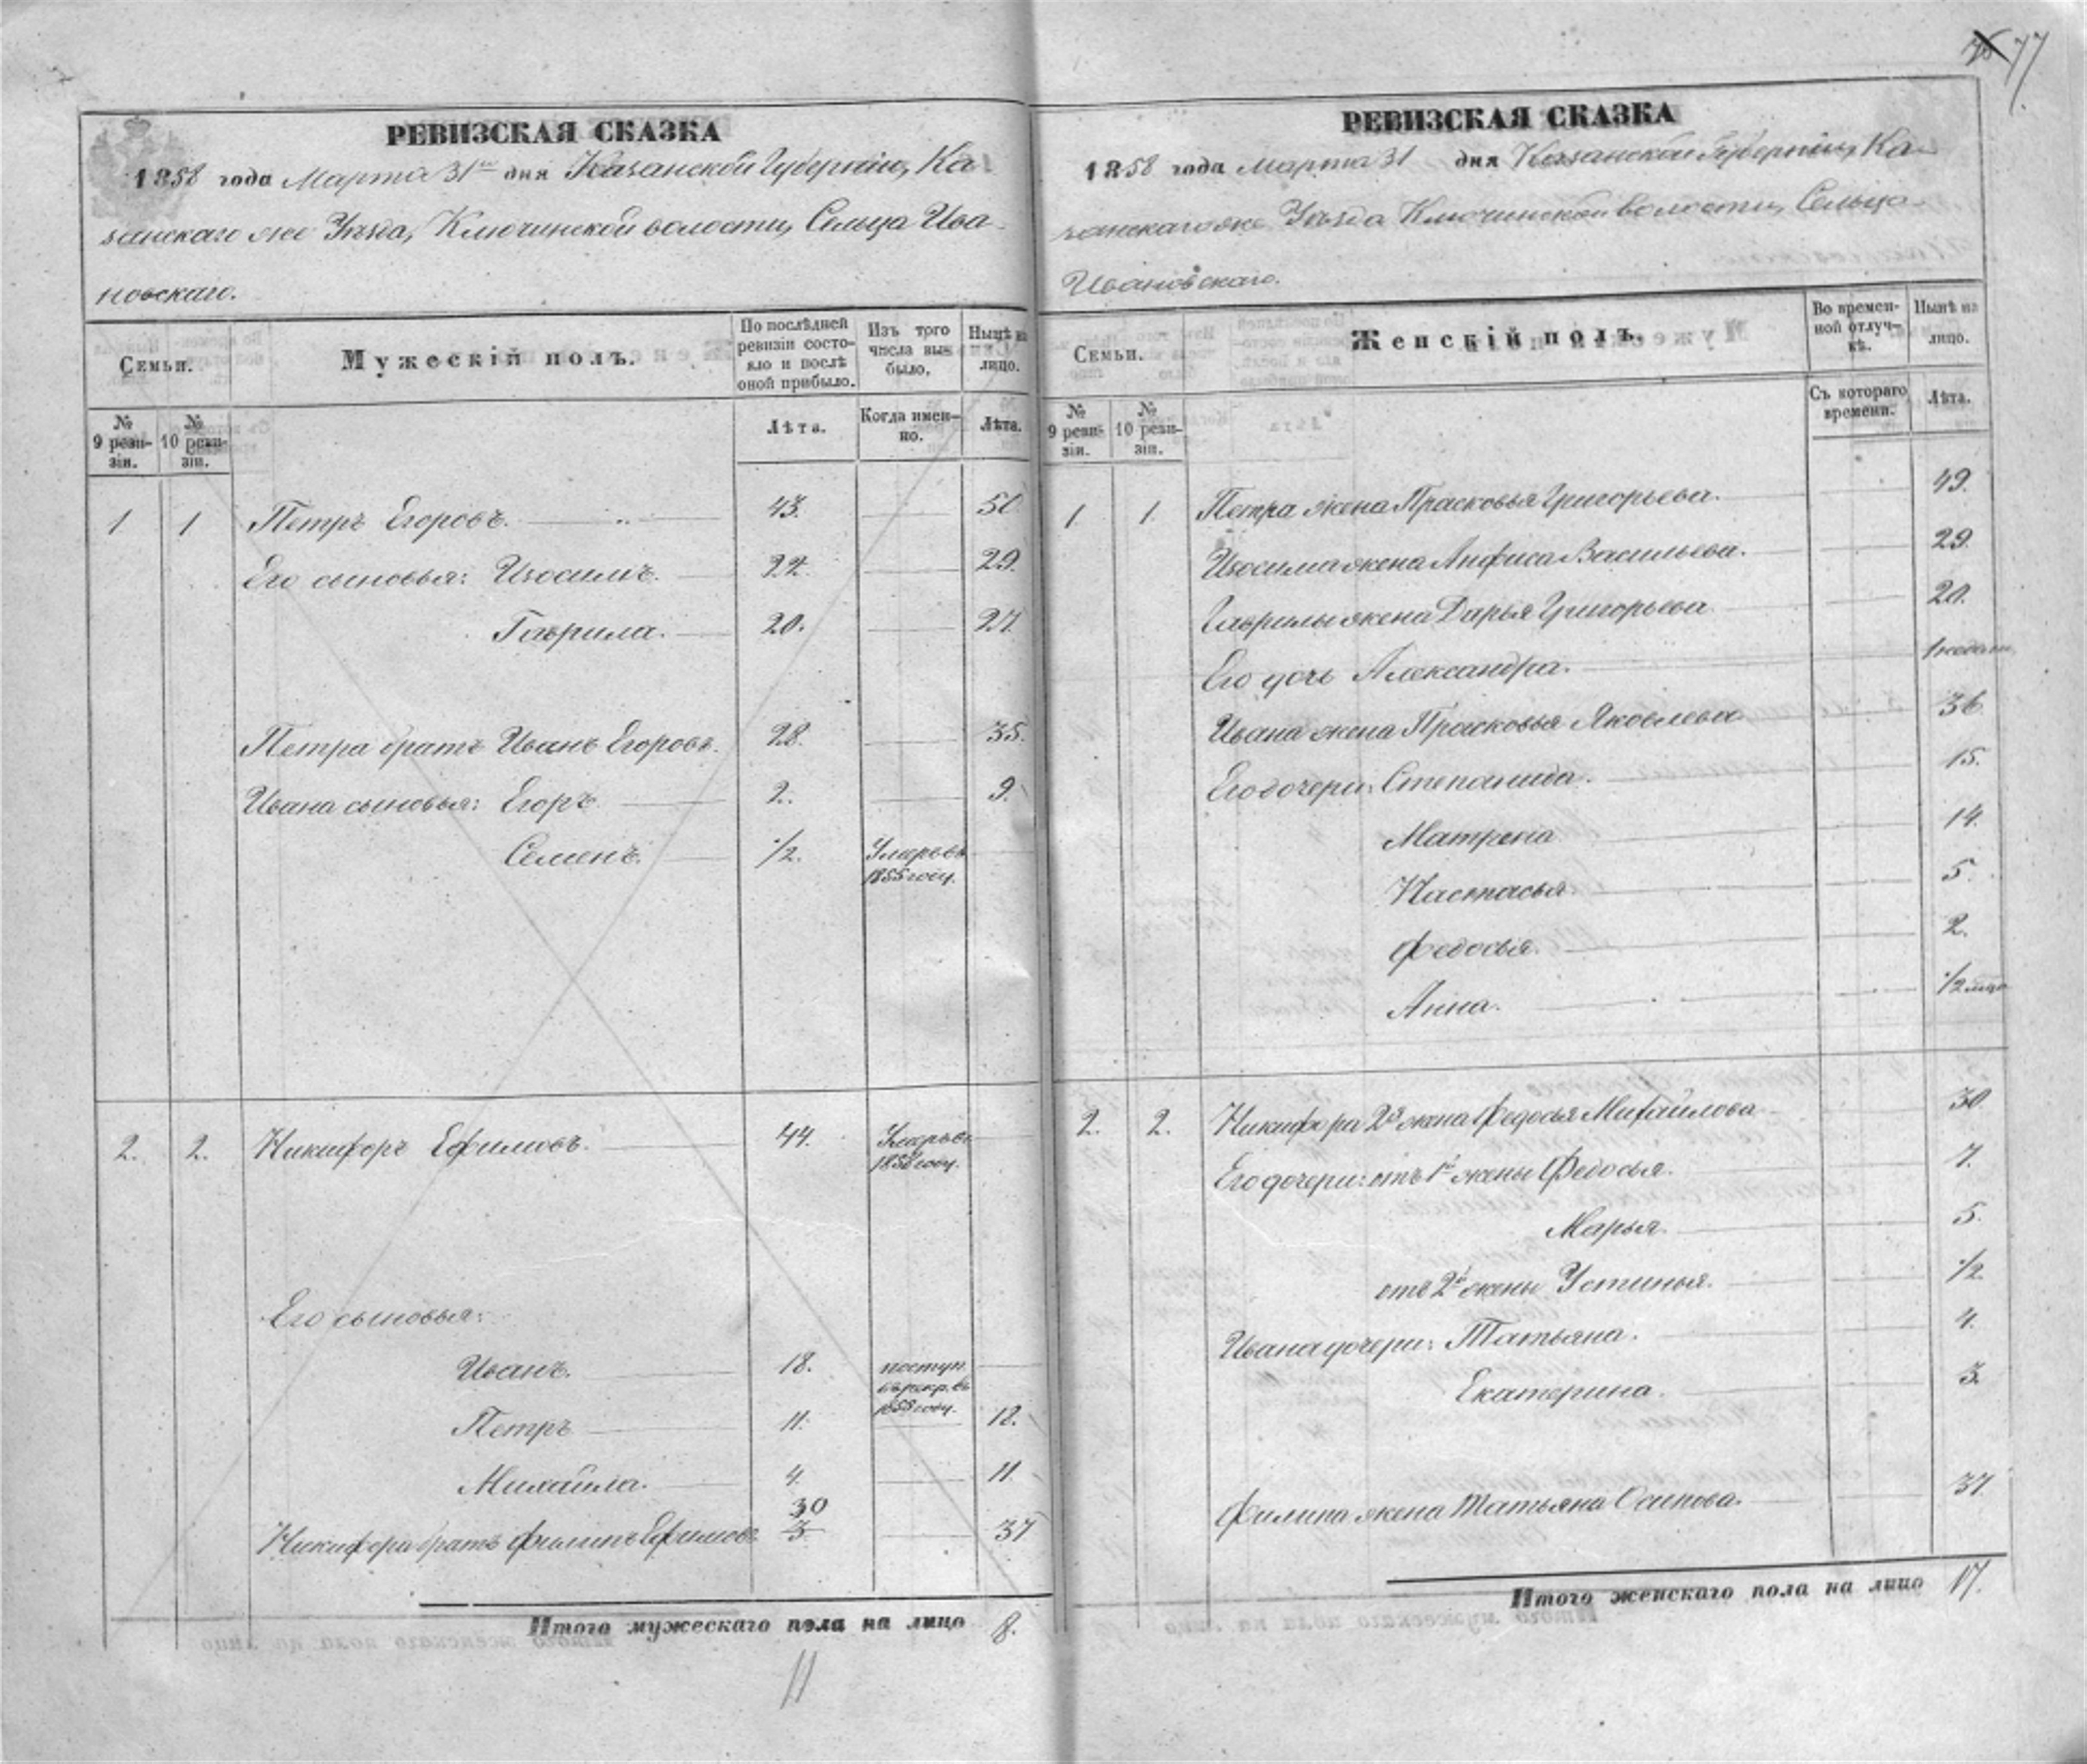 77
РЕВИЗСКАЯ СКАЗКА
1858 года Марта 31го дня Казанской Губернiи, Ка
занскаго же Уѣзда, Ключинской волости, Сельца Ива
новскаго.
Семьи.
Мужескiй полъ.
По послѣдней ревизiи состояло и послѣ оной прибыло.
Изъ того числа выбыло.
Нынѣ на лицо.
№ 9 ревизiи.
№ 10 ревизiи.
Лѣта.
Когда именно.
Лѣта.
1 1 Петръ Егоровъ. 43. 50
Его сыновья: Изосимъ. 22. 29.
Гаврила. 20. 27.
Петра братъ Иванъ Егоровъ. 28. 35.
Ивана сыновья: Егоръ 2. 9.
Семенъ. 1/2. Умеръ въ
1855 году.
2. 2. Никифоръ Ефимовъ. 44. Умеръ въ
году.
Его сыновья:
Иванъ. 18. поступ.
въ рекр. въ
1855 году.
Петръ 11. 18.
Михайла. 4. 11.
30
Никифора братъ Филипъ Ефимовъ 3 37
Итого мужескаго пола на лицо 8.
11
РЕВИЗСКАЯ СКАЗКА
1858 года Марта 31 дня Казанской Губернiи, Ка
занскаго же Уѣзда Ключинской волости, Сельца
Ивановскаго.
Семьи.
Женскiй полъ.
Во временной отлучкѣ.
Нынѣ на лицо.
№ 9 ревизiи.
№ 10 ревизiи.
Съ котораго времени.
Лѣта.
1. 1. Петра жена Прасковья Григорьева. 49.
Изосима жена Анфиса Васильева. 29.
Гаврилы жена Дарья Григорьева 20.
Его дочь Александра. 1 недели
Ивана жена Прасковья Яковлева 36.
Его дочери: Степанида. 15.
Матрена 14.
Настасья. 5.
Федосья. 2.
Анна. 1/2
2. 2. Никифора 2я жена Федосья Михайлова 30.
Его дочери: отъ 1й жены Федосья. 7.
Марья. 5.
отъ 2й жены Устинья. 1/2
Ивана дочери: Татьяна. 4.
Екатерина. 3.
Филипа жена Татьяна Осипова. 37
Итого женскаго пола на лицо 17.